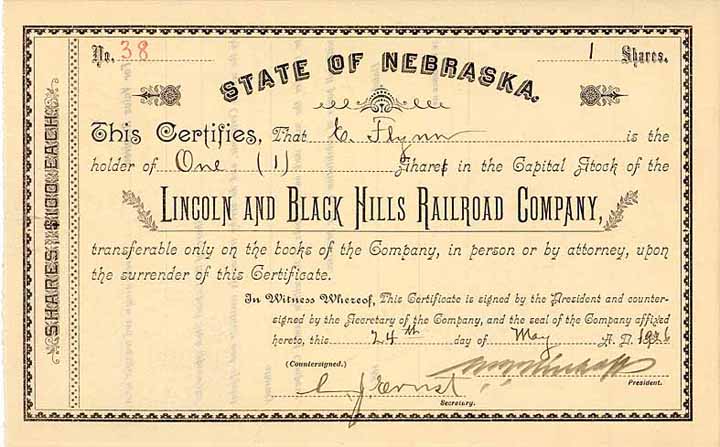 No. 38 1 Shares.
STATE OF NEBRASKA.
This Certifies, That E. Flynn is the
holder of One (1) Shares in the Capital Stock of the
LINCOLN AND BLACK HILLS RAILROAD COMPANY,
transferable only on the books of the Company, in person or by attorney, upon
the surrender of this Certificate.
In Witness Whereof, This Certificate is signed by the President and counter-
signed by the Secretary of the Company, and the seal of the Company affixed
hereto, this 24th day of May A. D.
(Countersigned.)
C. J. Ernst
Secretary.
President.
SHARES $100 EACH